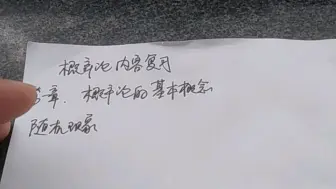 概率论内容复习
章. 概率论的基本概念
随机现象